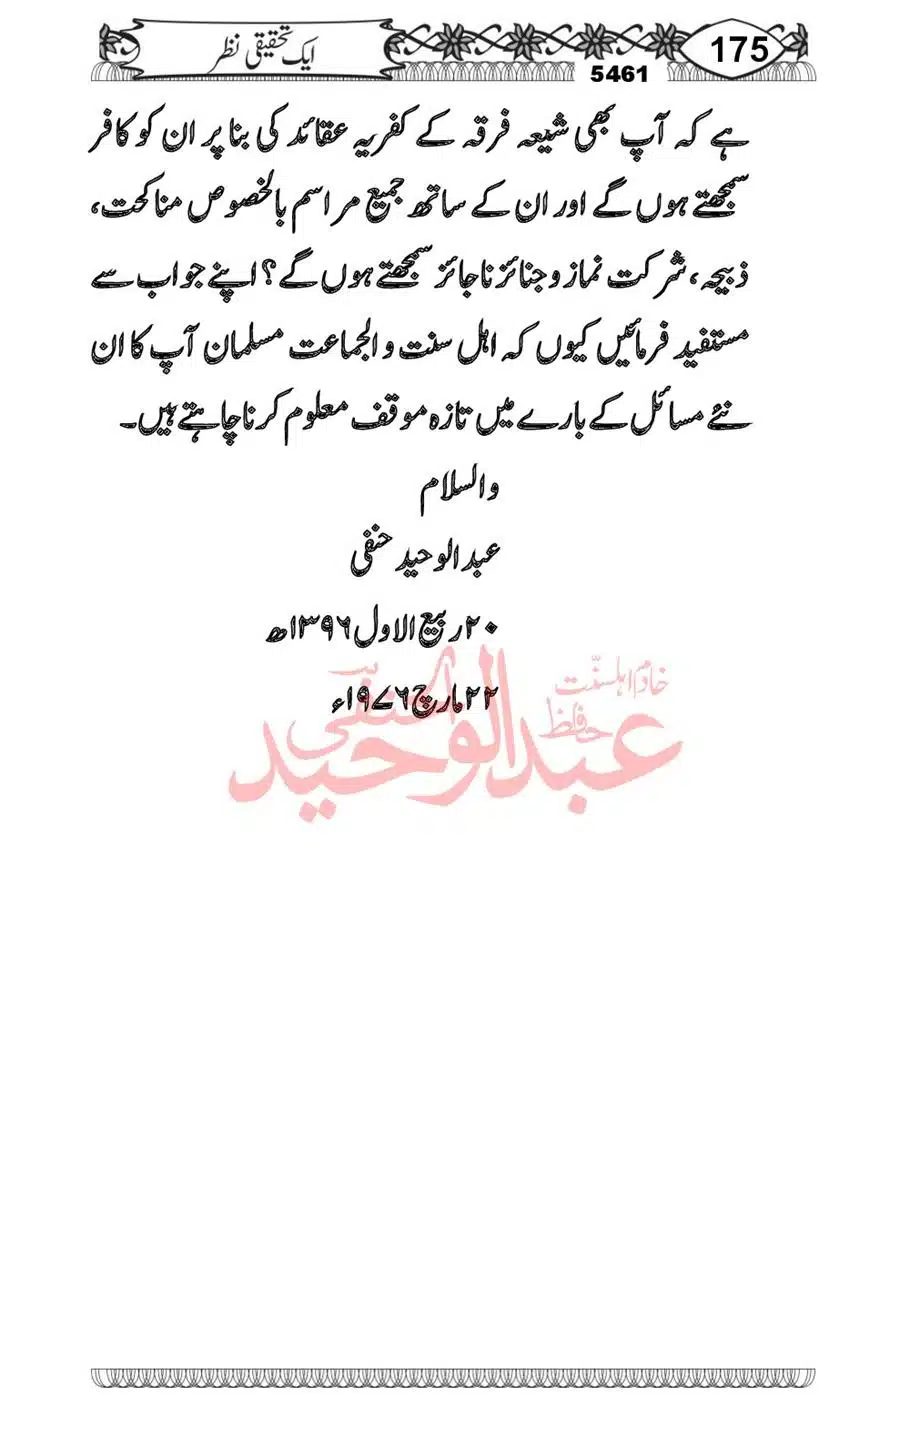 ایک تحقیقی نظر
175
5461
ہے کہ آپ بھی شیعہ فرقہ کے کفریہ عقائد کی بنا پر ان کو کافر
سمجھتے ہوں گے اور ان کے ساتھ جمیع مراسم بالخصوص مناکحت،
ذبیحہ، شرکت نماز و جنائز ناجائز سمجھتے ہوں گے؟ اپنے جواب سے
مستفید فرمائیں کیوں کہ اہل سنت والجماعت مسلمان آپ کا ان
نئے مسائل کے بارے میں تازہ موقف معلوم کرنا چاہتے ہیں۔
والسلام
عبدالوحید حنفی
۲۰ ربیع الاول ۱۳۹۶ھ
۲۲ مارچ ۱۹۷۶ء
خادم اہلسنّت
حافظ عبدالوحید الحنفی